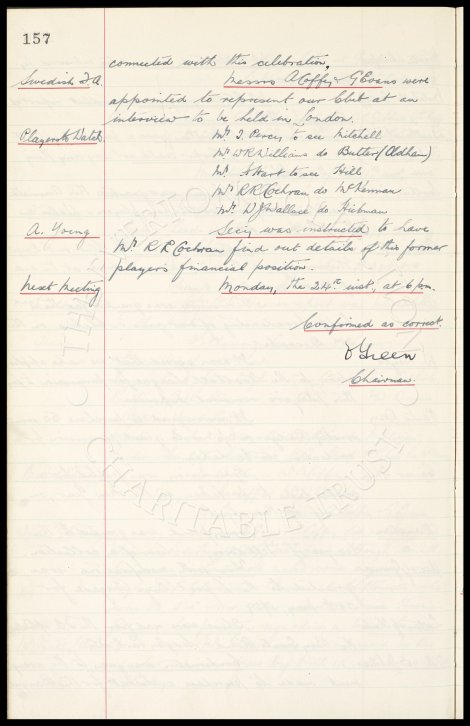 157
connected with this celebration.
Swedish F.A. Messrs A Coffey & G Evans were
appointed to represent our Club at an
interview to be held in London.
Players to Watch. Mr. T. Percy to see Mitchell
Mr. W R Williams do Butler (Oldham)
Mr. A Hart to see Hill
Mr. R R Cochran do McKennan
Mr. D J Wallace do Hibman
A. Young Secy was instructed to have
Mr. R R Cochran find out details of this former
players financial position.
Next Meeting Monday, the 24th inst, at 6 pm.
Confirmed as correct.
Green
Chairman.
CHARITABLE TRUST